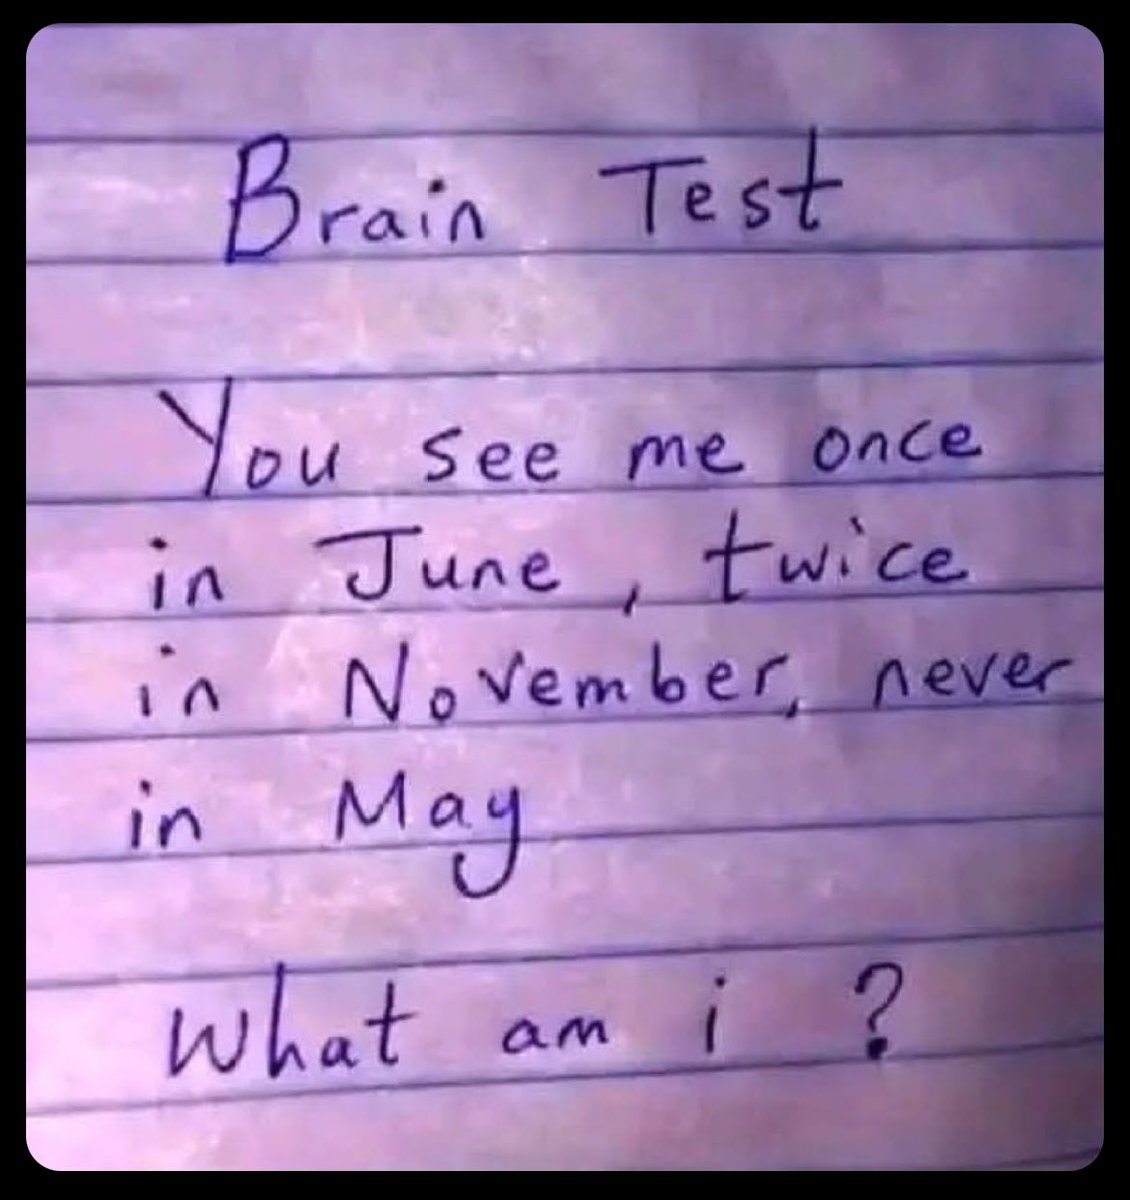 Brain Test
You see me once
in June, twice
in November, never
in May
What am i ?